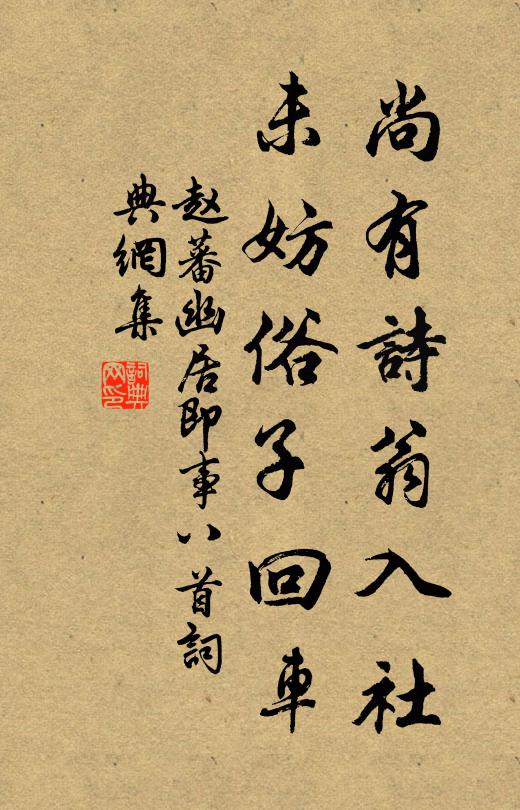 尚有詩翁入社
未妨俗子回車
赵蕃幽居即事八首詞
典網集
詞典网印